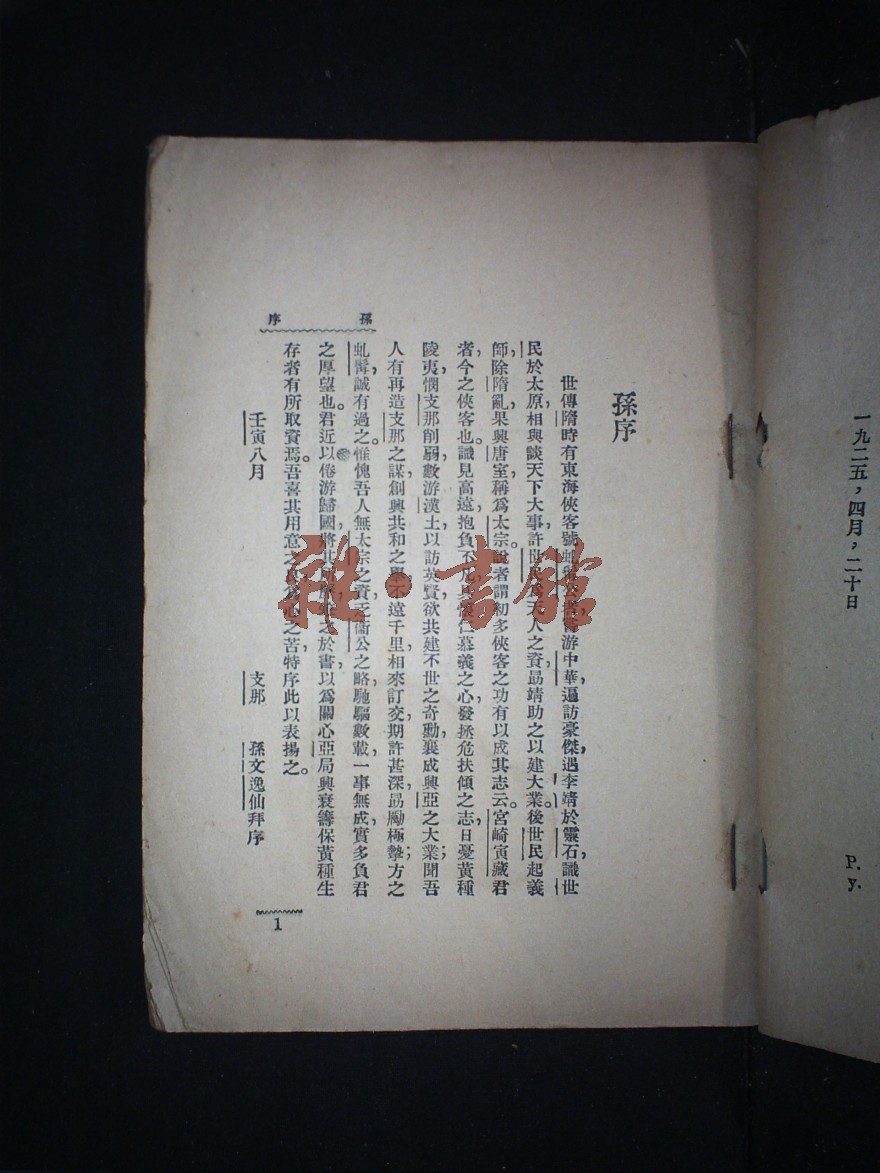 一九二五，四月，二十日
P. y.
孫序
世傳隋時有東海俠客號虬髯公者，嘗游中華，遍訪豪傑，遇李靖於靈石，識世
民於太原，相與談天下大事，許世民爲天人之資，勗靖助之以建大業。後世民起義
師，除隋亂，果興唐室，稱爲太宗。說者謂初多俠客之功有以成其志云。宮崎寅藏君
者，今之俠客也。識見高遠，抱負不凡，具懷仁慕義之心，發拯危扶傾之志，日憂黃種
陵夷，憫支那削弱，數游漢土，以訪英賢，欲共建不世之奇勳，襄成興亞之大業；聞吾
人有再造支那之謀，創興共和之舉，不遠千里，相來訂交，期許甚深，勗勵極摯；方之
虬髯，誠有過之。惟愧吾人無太宗之資，乏衞公之略，馳驅數載，一事無成，實多負君
之厚望也。君近以倦游歸國，將其所歷，筆之於書，以爲關心亞局興衰，籌保黃種生
存者有所取資焉。吾喜其用意之良，爲心之苦，特序此以表揚之。
壬寅八月　支那　孫文逸仙拜序
孫序
1
書館